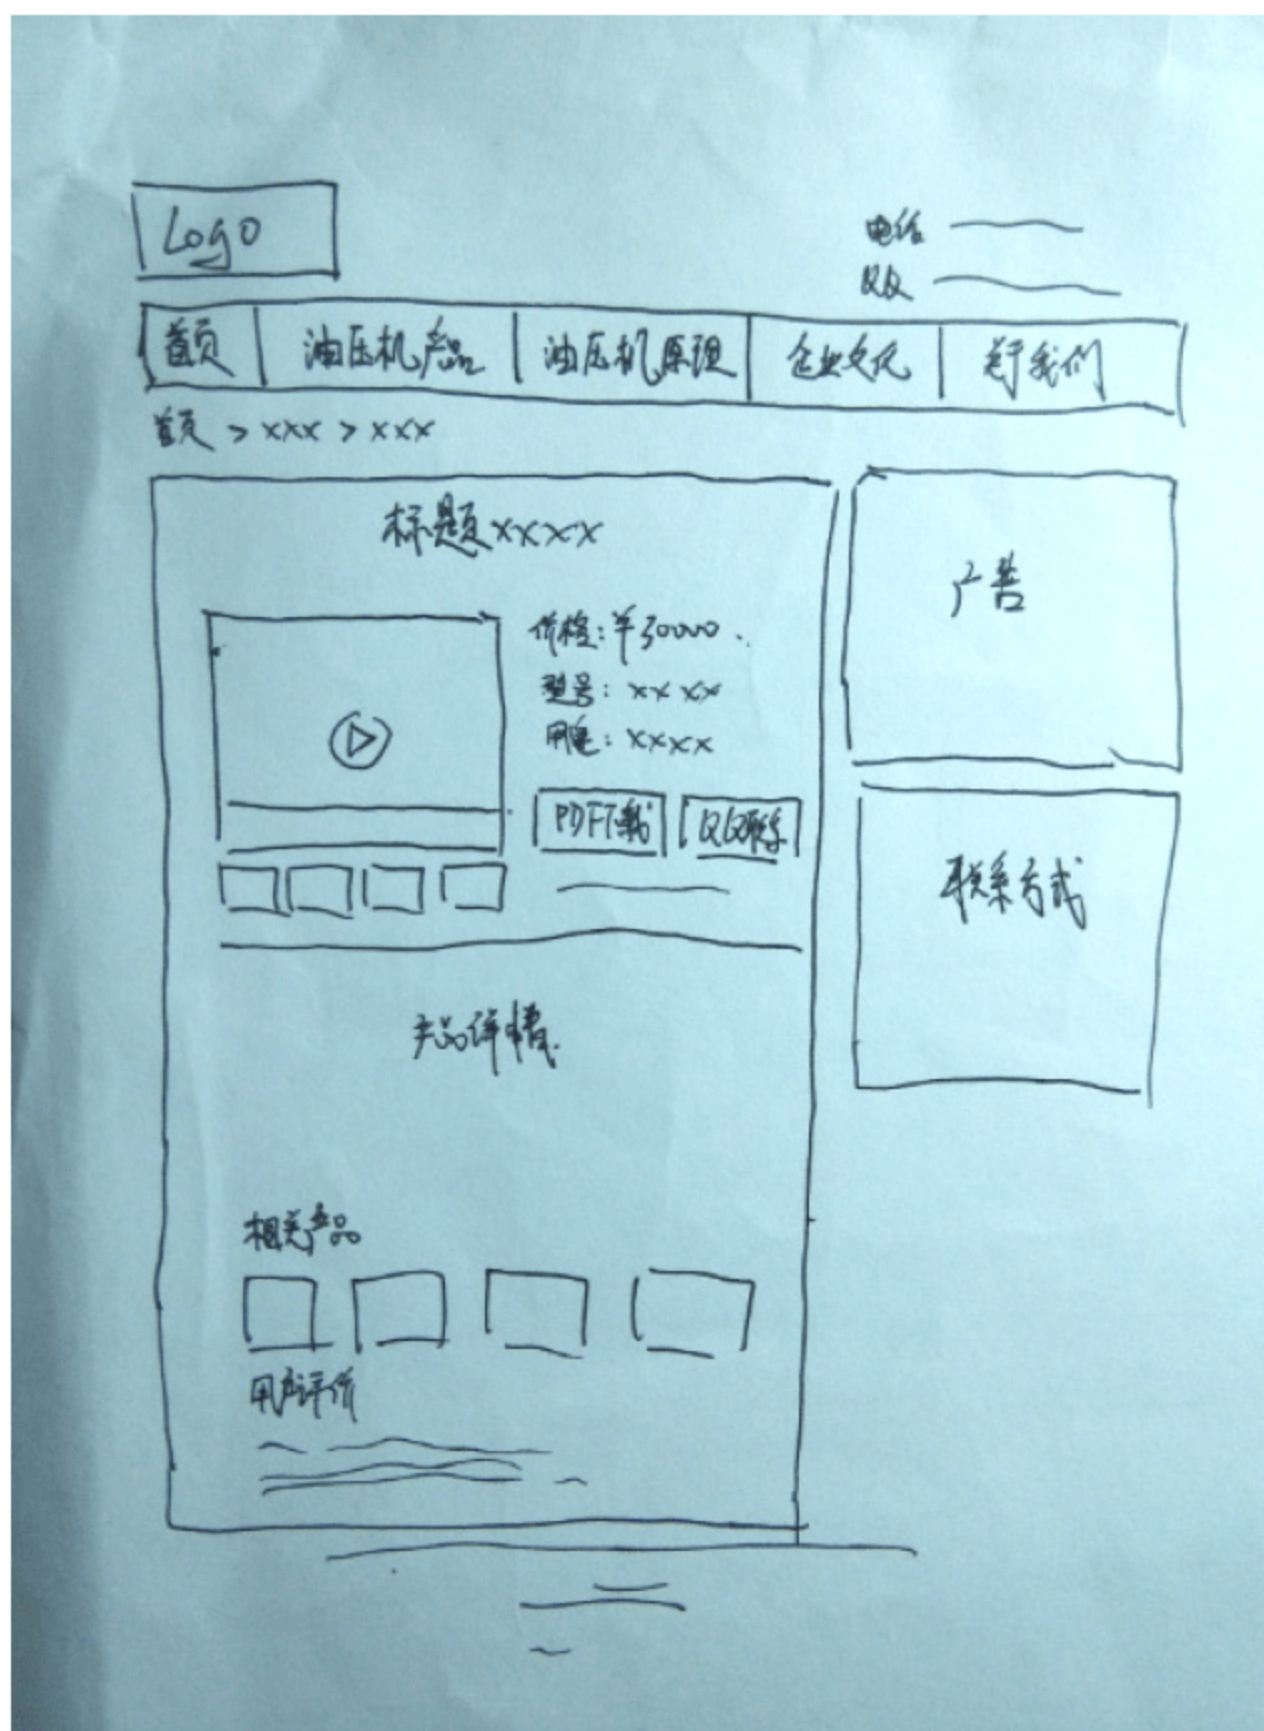 Logo
电话
QQ
首页 油压机产品 油压机原理 企业文化 关于我们
首页 > xxx > xxx
标题xxxx
广告
价格:¥30000.
型号: xx xx
用途: xxxx
PDF下载 QQ联系
联系方式
产品详情.
相关产品
用户评价